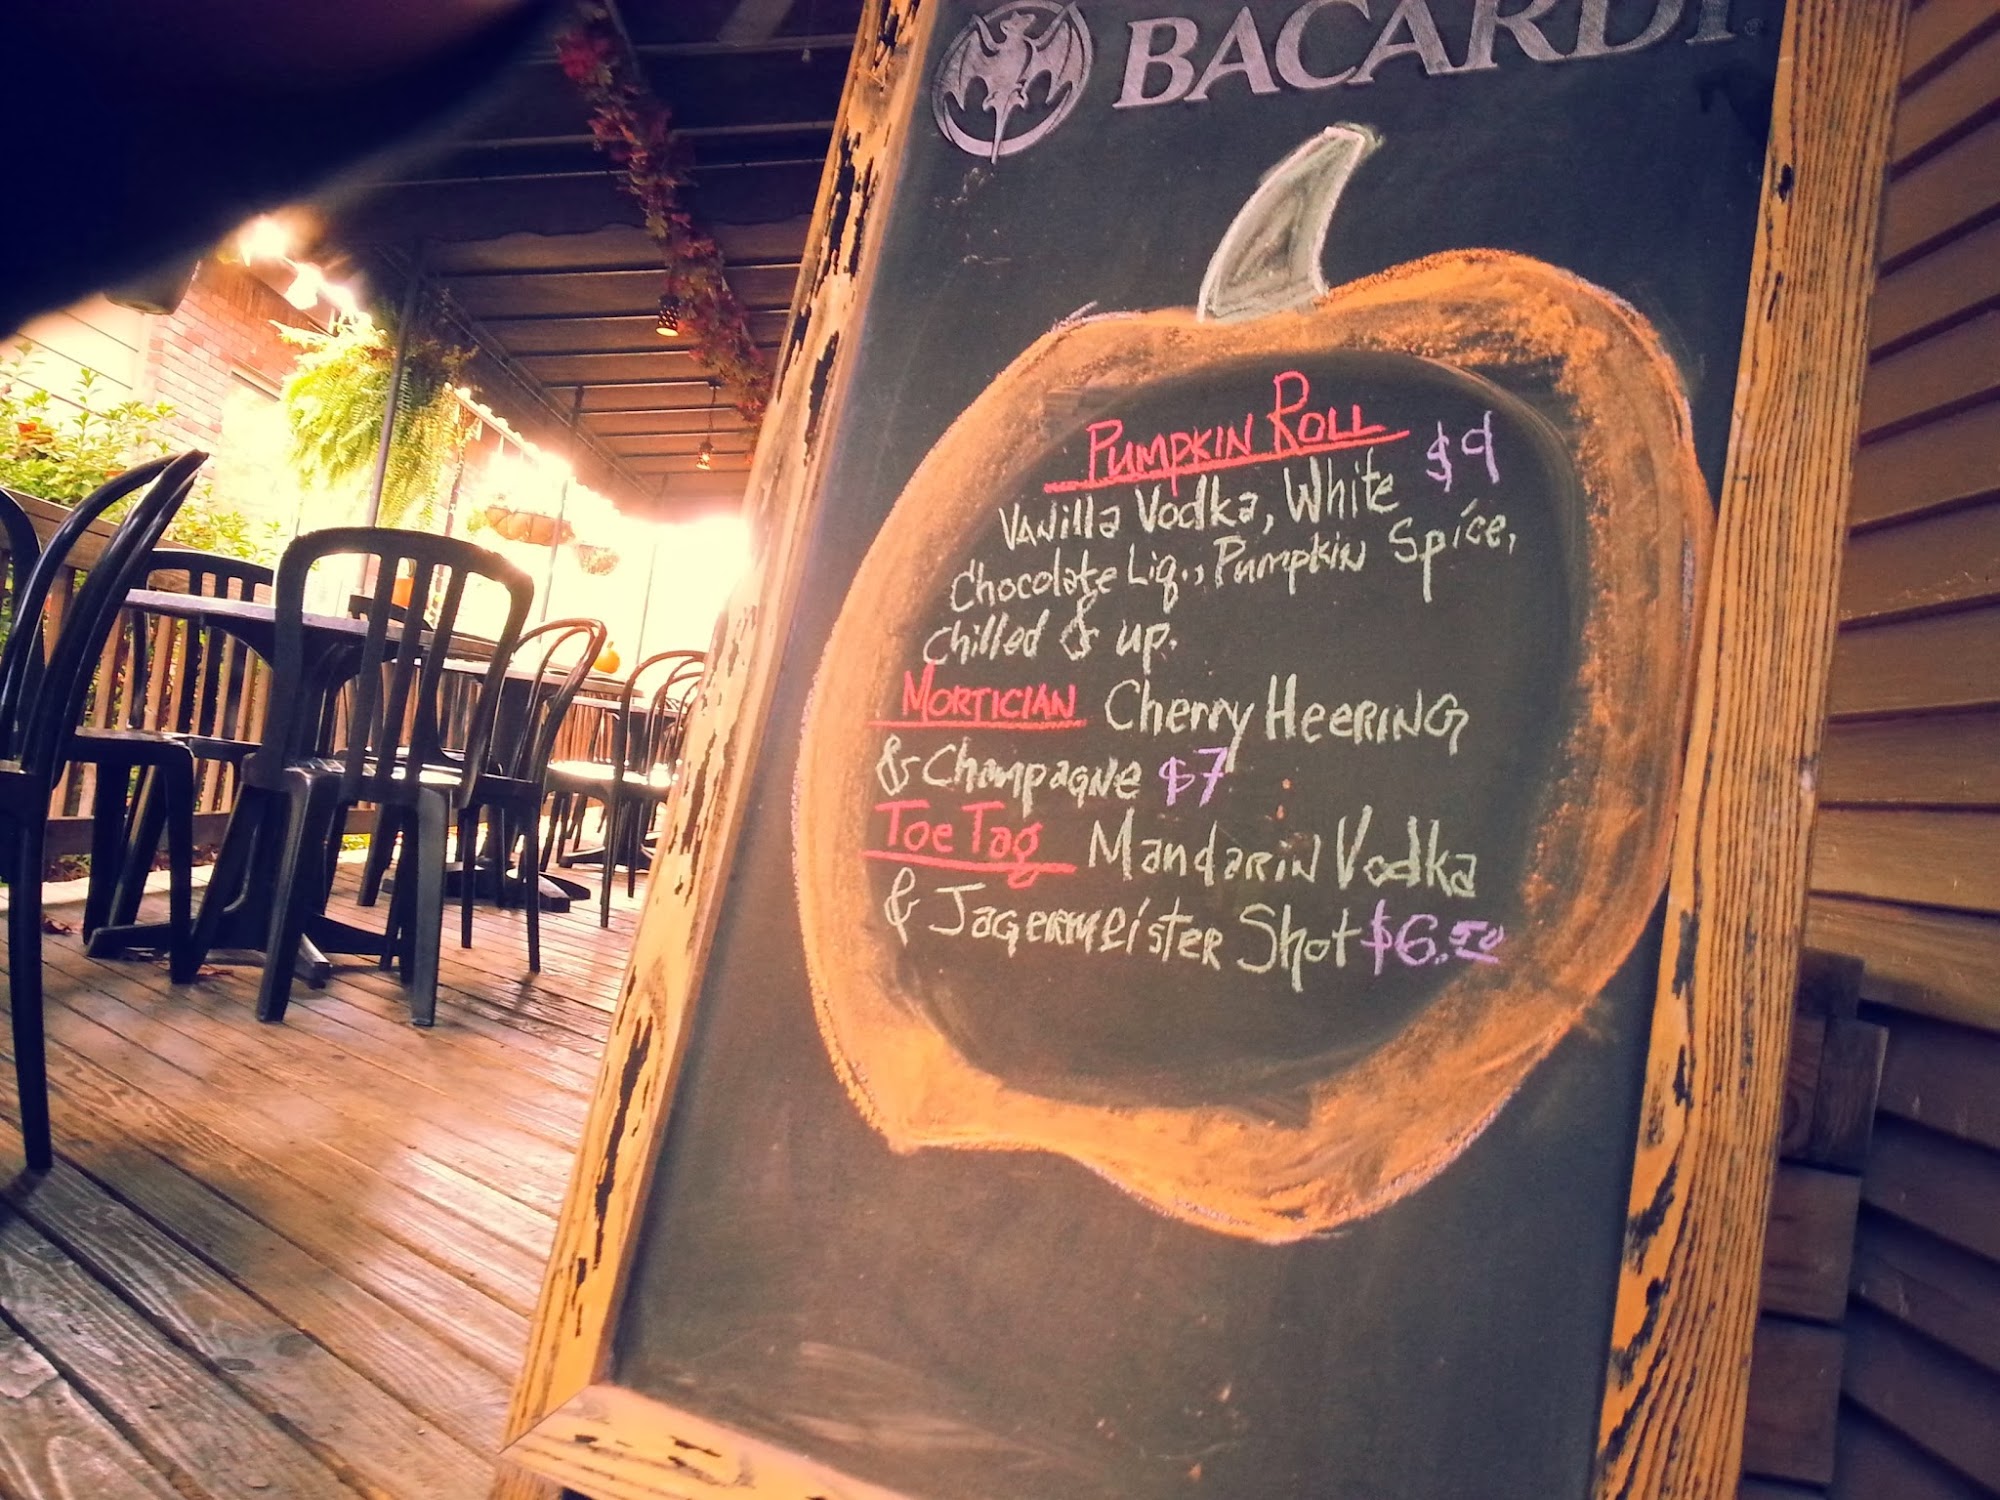 BACARDI
PUMPKIN ROLL $9
VANilla Vodka, White
Chocolate Liq., PUMPKIN Spice,
chilled & up.
MORTICIAN Cherry HEERING
& Champagne $7
Toe Tag Mandarin Vodka
& JAGERMEISTER Shot $6.50